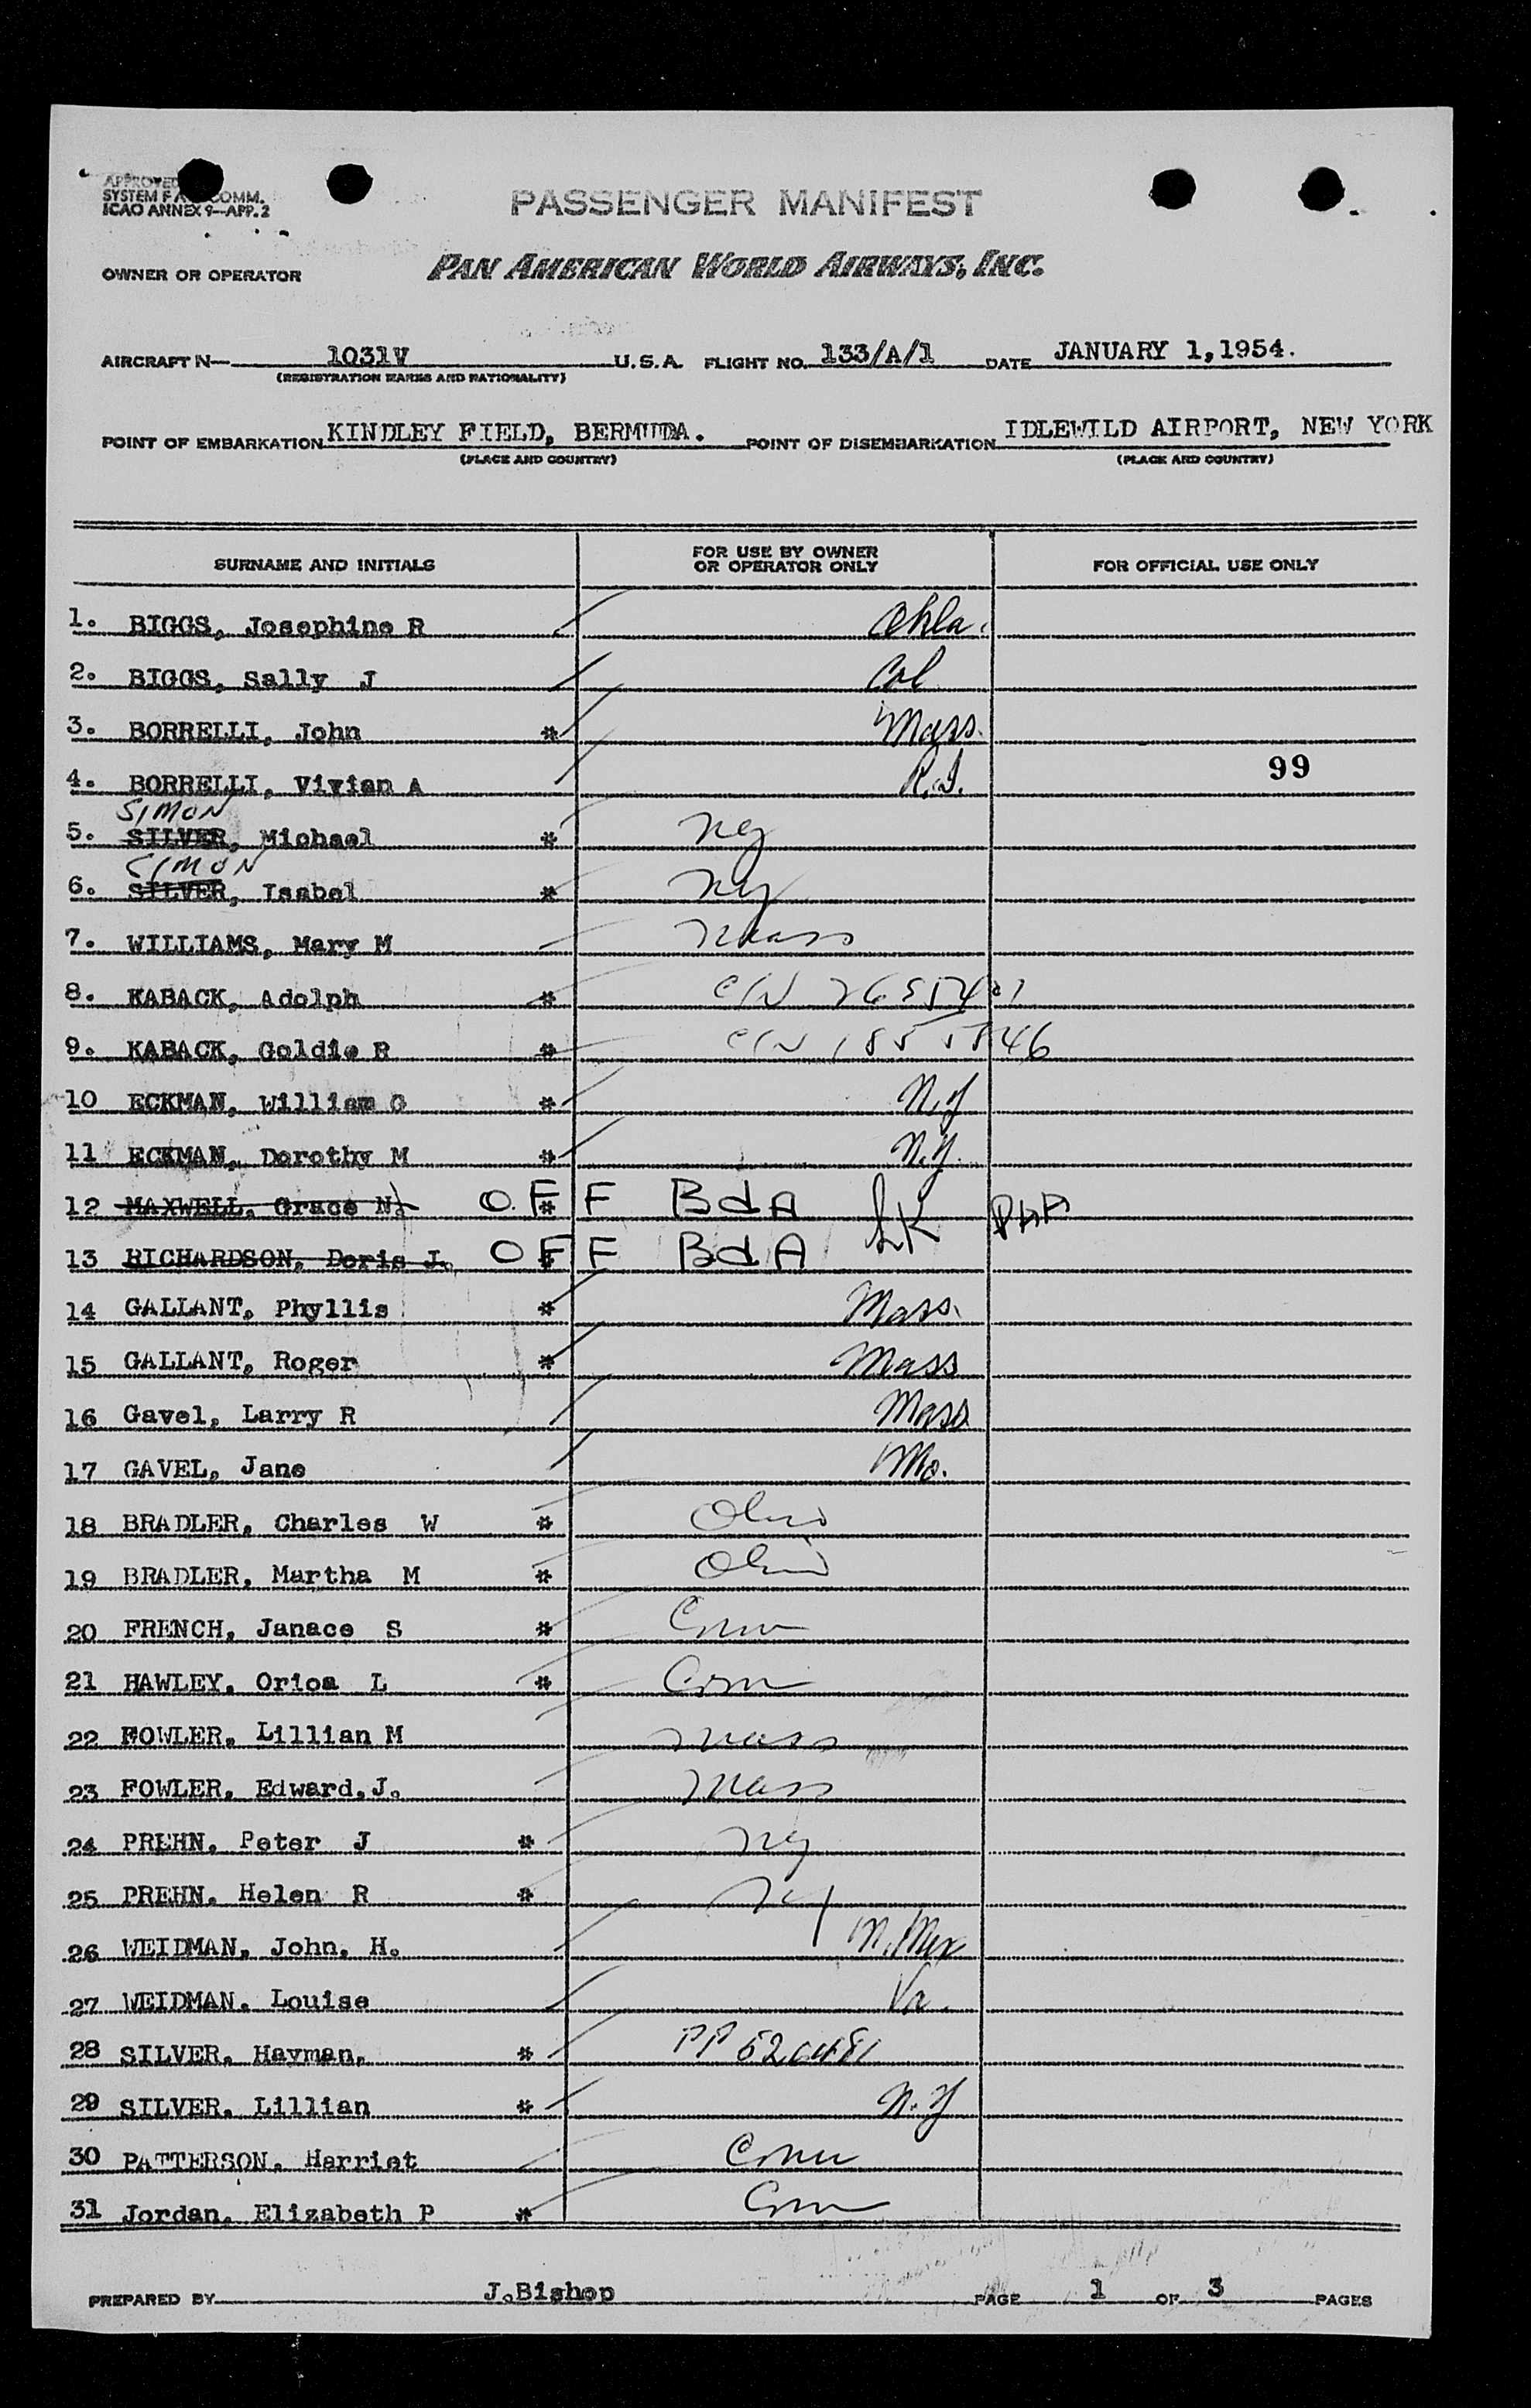 APPROVED
SYSTEM F A COMM.
ICAO ANNEX 9—APP. 2
PASSENGER MANIFEST
OWNER OR OPERATOR PAN AMERICAN WORLD AIRWAYS, INC.
AIRCRAFT N— 1031V U. S. A. FLIGHT NO. 133/A/1 DATE JANUARY 1, 1954.
(REGISTRATION MARKS AND NATIONALITY)
POINT OF EMBARKATION KINDLEY FIELD, BERMUDA. POINT OF DISEMBARKATION IDLEWILD AIRPORT, NEW YORK
(PLACE AND COUNTRY) (PLACE AND COUNTRY)
SURNAME AND INITIALS FOR USE BY OWNER OR OPERATOR ONLY FOR OFFICIAL USE ONLY
1. BIGGS, Josephine R Okla.
2. BIGGS, Sally J Col
3. BORRELLI, John * Mass.
4. BORRELLI, Vivian A R.I. 99
SIMON
5. SILVER, Michael * ny
SIMON
6. SILVER, Isabel * ny
7. WILLIAMS, Mary M Mass
8. KABACK, Adolph * C/N
9. KABACK, Goldie R * C/N
10 ECKMAN, William G * N.Y
11 ECKMAN, Dorothy M * N.Y.
12 MAXWELL, Grace N. * OFF BdA LK
13 RICHARDSON, Doris J. * OFF BdA
14 GALLANT, Phyllis * Mass.
15 GALLANT, Roger * Mass
16 Gavel, Larry R Mass
17 GAVEL, Jane Mo.
18 BRADLER, Charles W * Ohio
19 BRADLER, Martha M * Ohio
20 FRENCH, Janace S * Conn
21 HAWLEY, Orioa L * Conn
22 FOWLER, Lillian M Mass
23 FOWLER, Edward.J. Mass
24 PREHN, Peter J * ny
25 PREHN, Helen R * ny
26 WEIDMAN, John, H. N. Mex
27 WEIDMAN, Louise Va.
28 SILVER, Hayman, * PP
29 SILVER, Lillian * N.Y
30 PATTERSON, Harriet Conn
31 Jordan, Elizabeth P * Conn
PREPARED BY J.Bishop PAGE 1 OF 3 PAGES